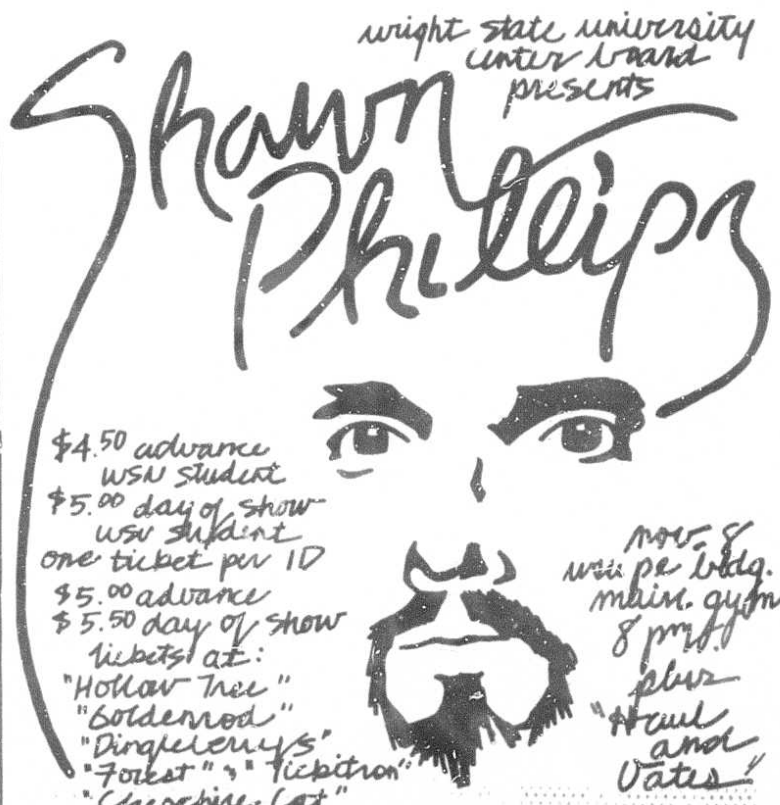 wright state university
center board
presents
Shawn
Phillips
$4.50 advance
wsu student
$5.00 day of show
wsu student
one ticket per ID
$5.00 advance
$5.50 day of show
tickets at:
"Hollow Tree"
"Goldenrod"
"Dingleberry's"
"Forest" & "Ticketron"
"Cheschire Cat"
nov. 8
wsu pe bldg.
main. gym
8 pm.
plus
"Haul
and
Oates"